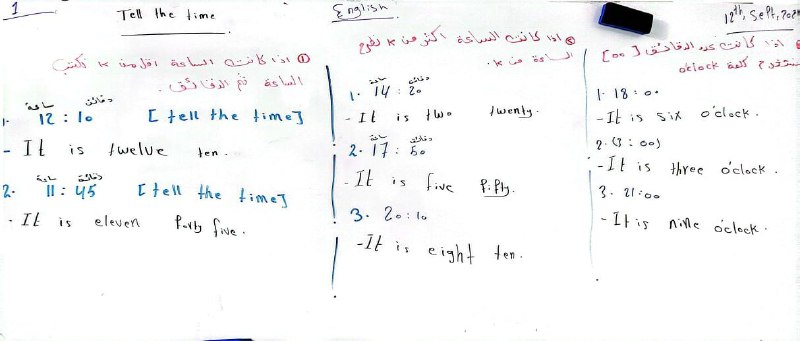 1
Tell the time
English
12th, Sept, 202
① اذا كانت الساعة اقل من ١٢ نكتب
الساعة ثم الدقائق.
ساعة دقائق
1. 12 : 10 [tell the time]
- It is twelve ten.
ساعة دقائق
2. 11 : 45 [tell the time]
- It is eleven forty five.
② اذا كانت الساعة اكثر من ١٢ نطرح
الساعة من ١٢.
ساعة دقائق
1. 14 : 20
- It is two twenty.
ساعة دقائق
2. 17 : 50
- It is five fifty.
3. 20:10
- It is eight ten.
اذا كانت عدد الدقائق [00]
نستخدم كلمة oclock
1. 18 : 00
- It is six o'clock.
2. (3 : 00)
- It is three o'clock.
3. 21:00
- It is nine o'clock.